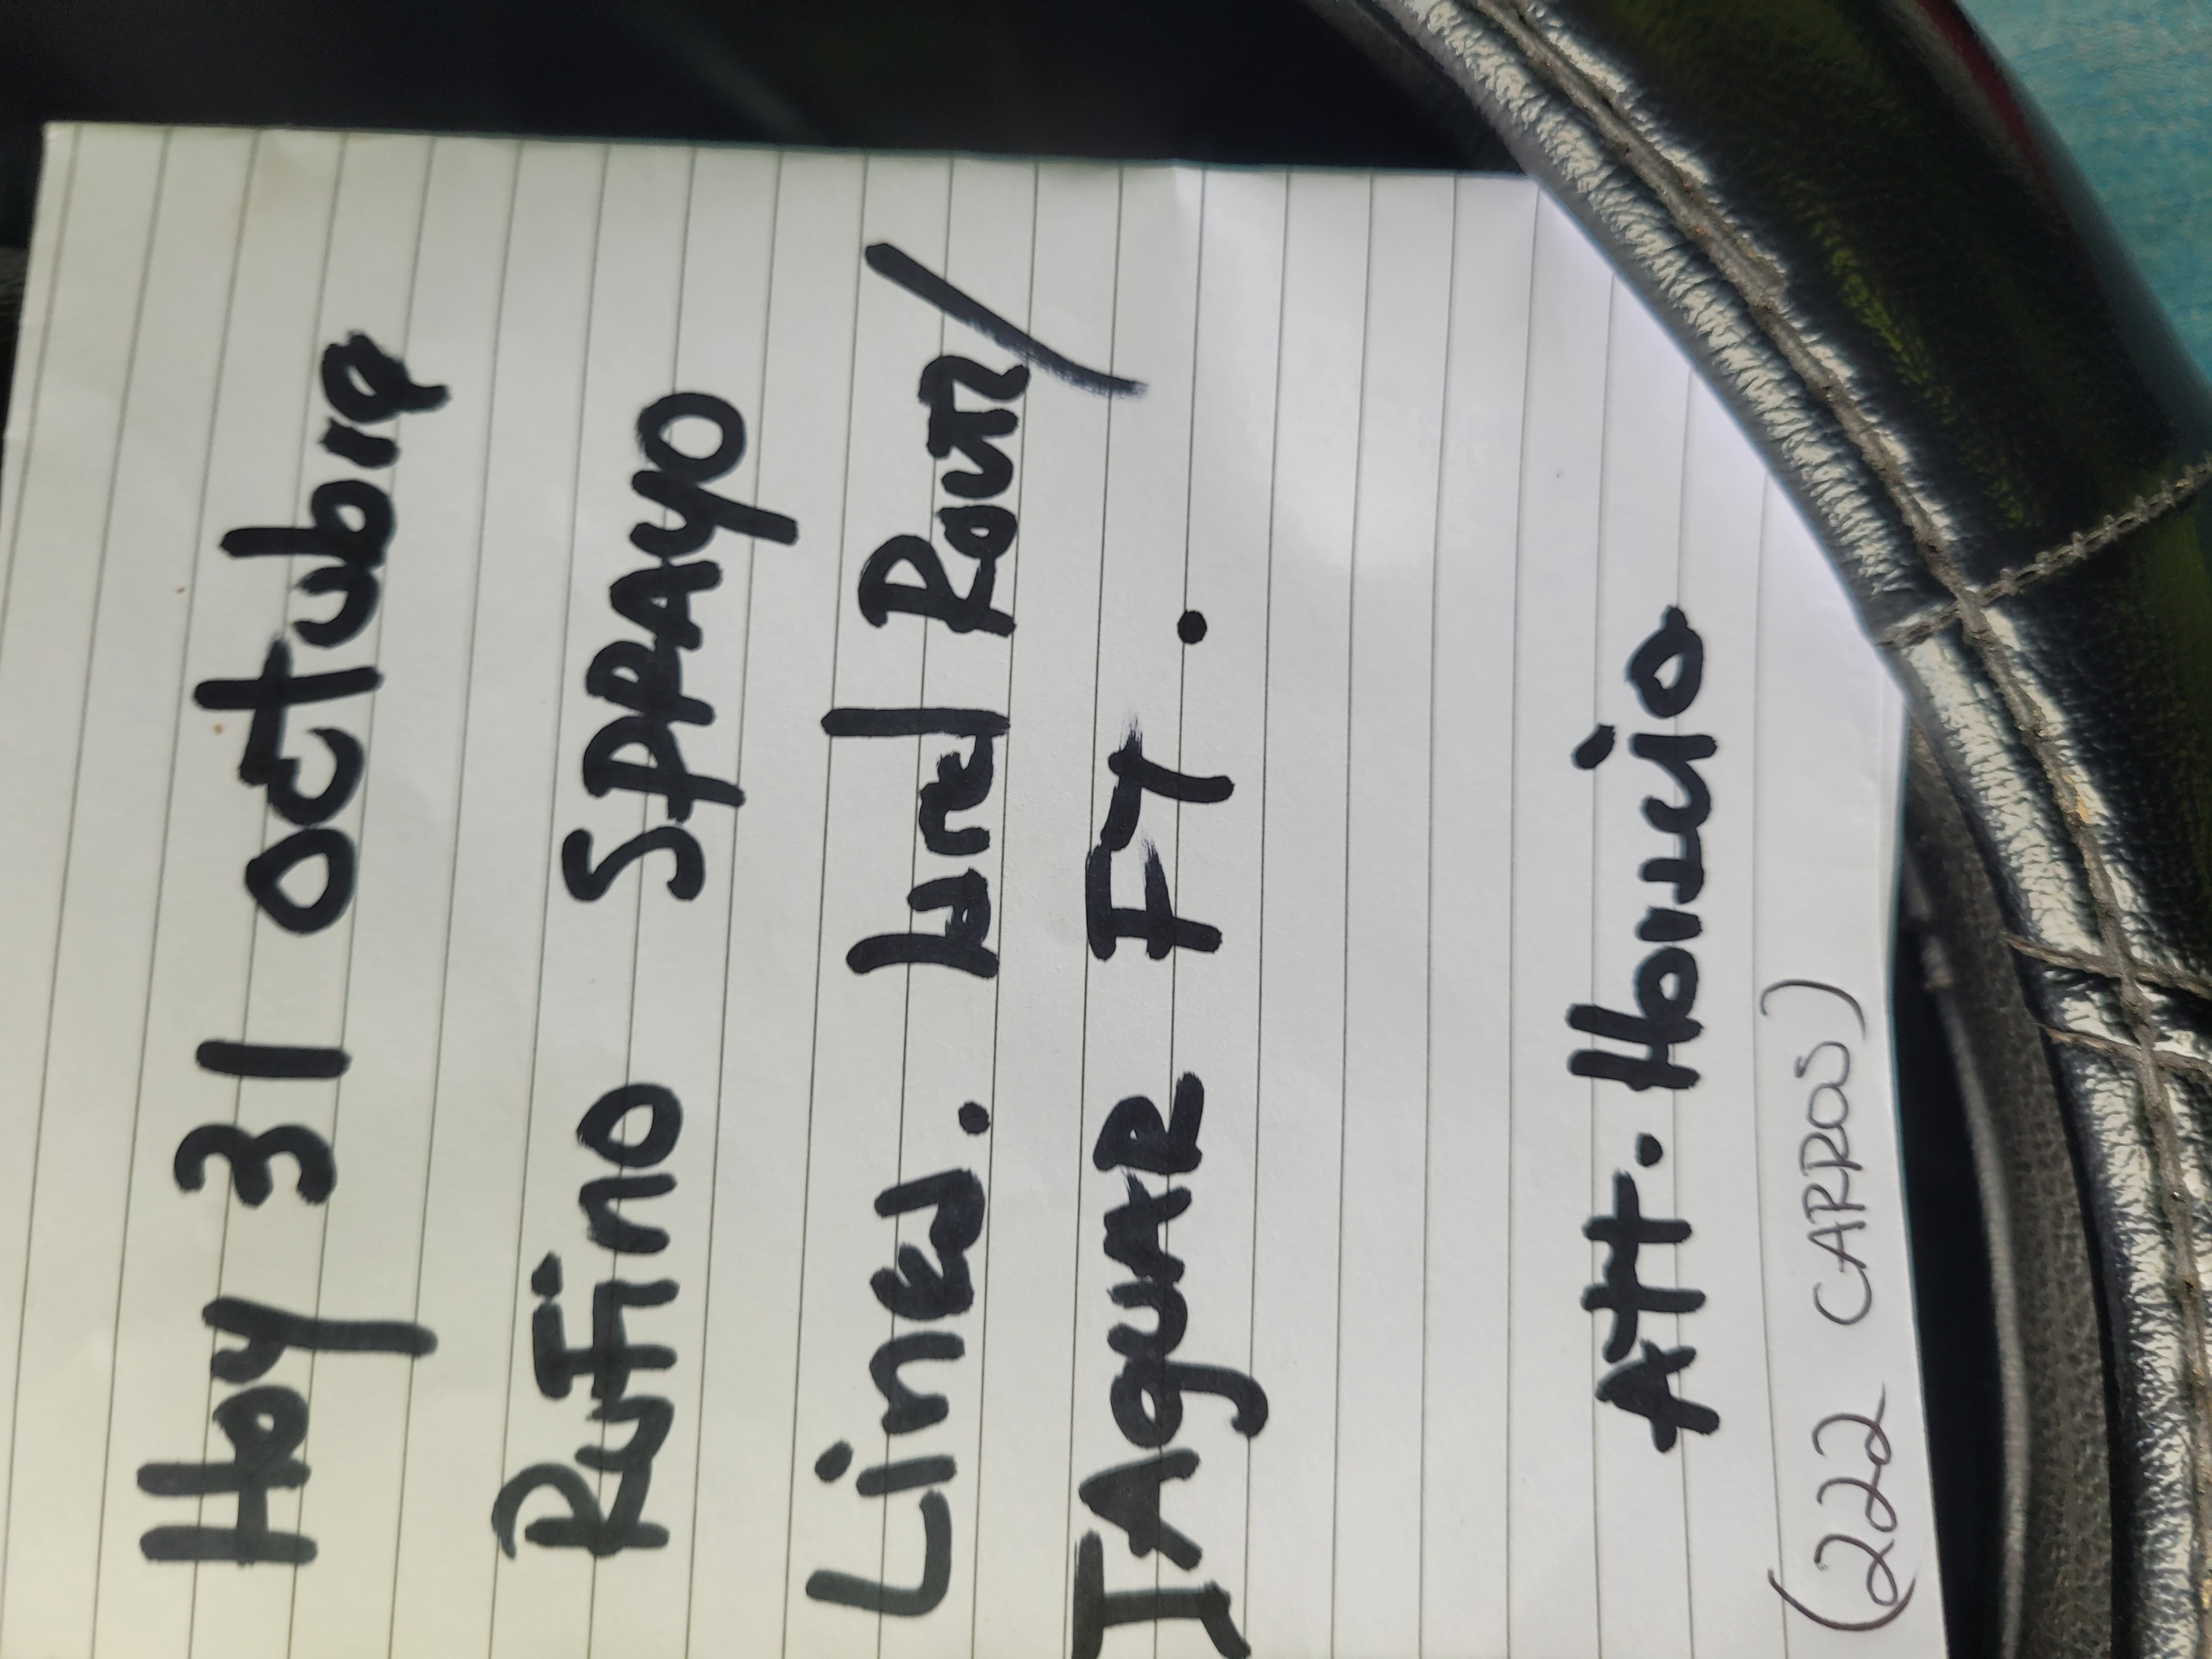 Hoy 31 octubre
Rufino SPRAYO
Lines. Lunel Roun/
JAguar F7.
Att. Horacio
(222 CARROS)